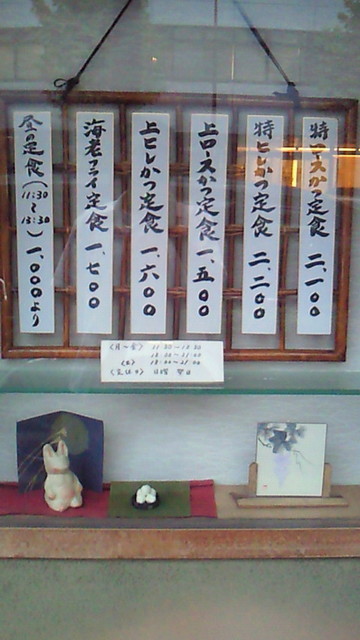 特ロースかつ定食 二、一〇〇
特ヒレかつ定食 二、二〇〇
上ロースかつ定食 一、五〇〇
上ヒレかつ定食 一、六〇〇
海老フライ定食 一、七〇〇
昼の定食(11:30〜13:30) 一、〇〇〇より
(月〜金) 11:30〜13:30
18:00〜21:00
(土) 18:00〜21:00
(定休日) 日曜 祭日